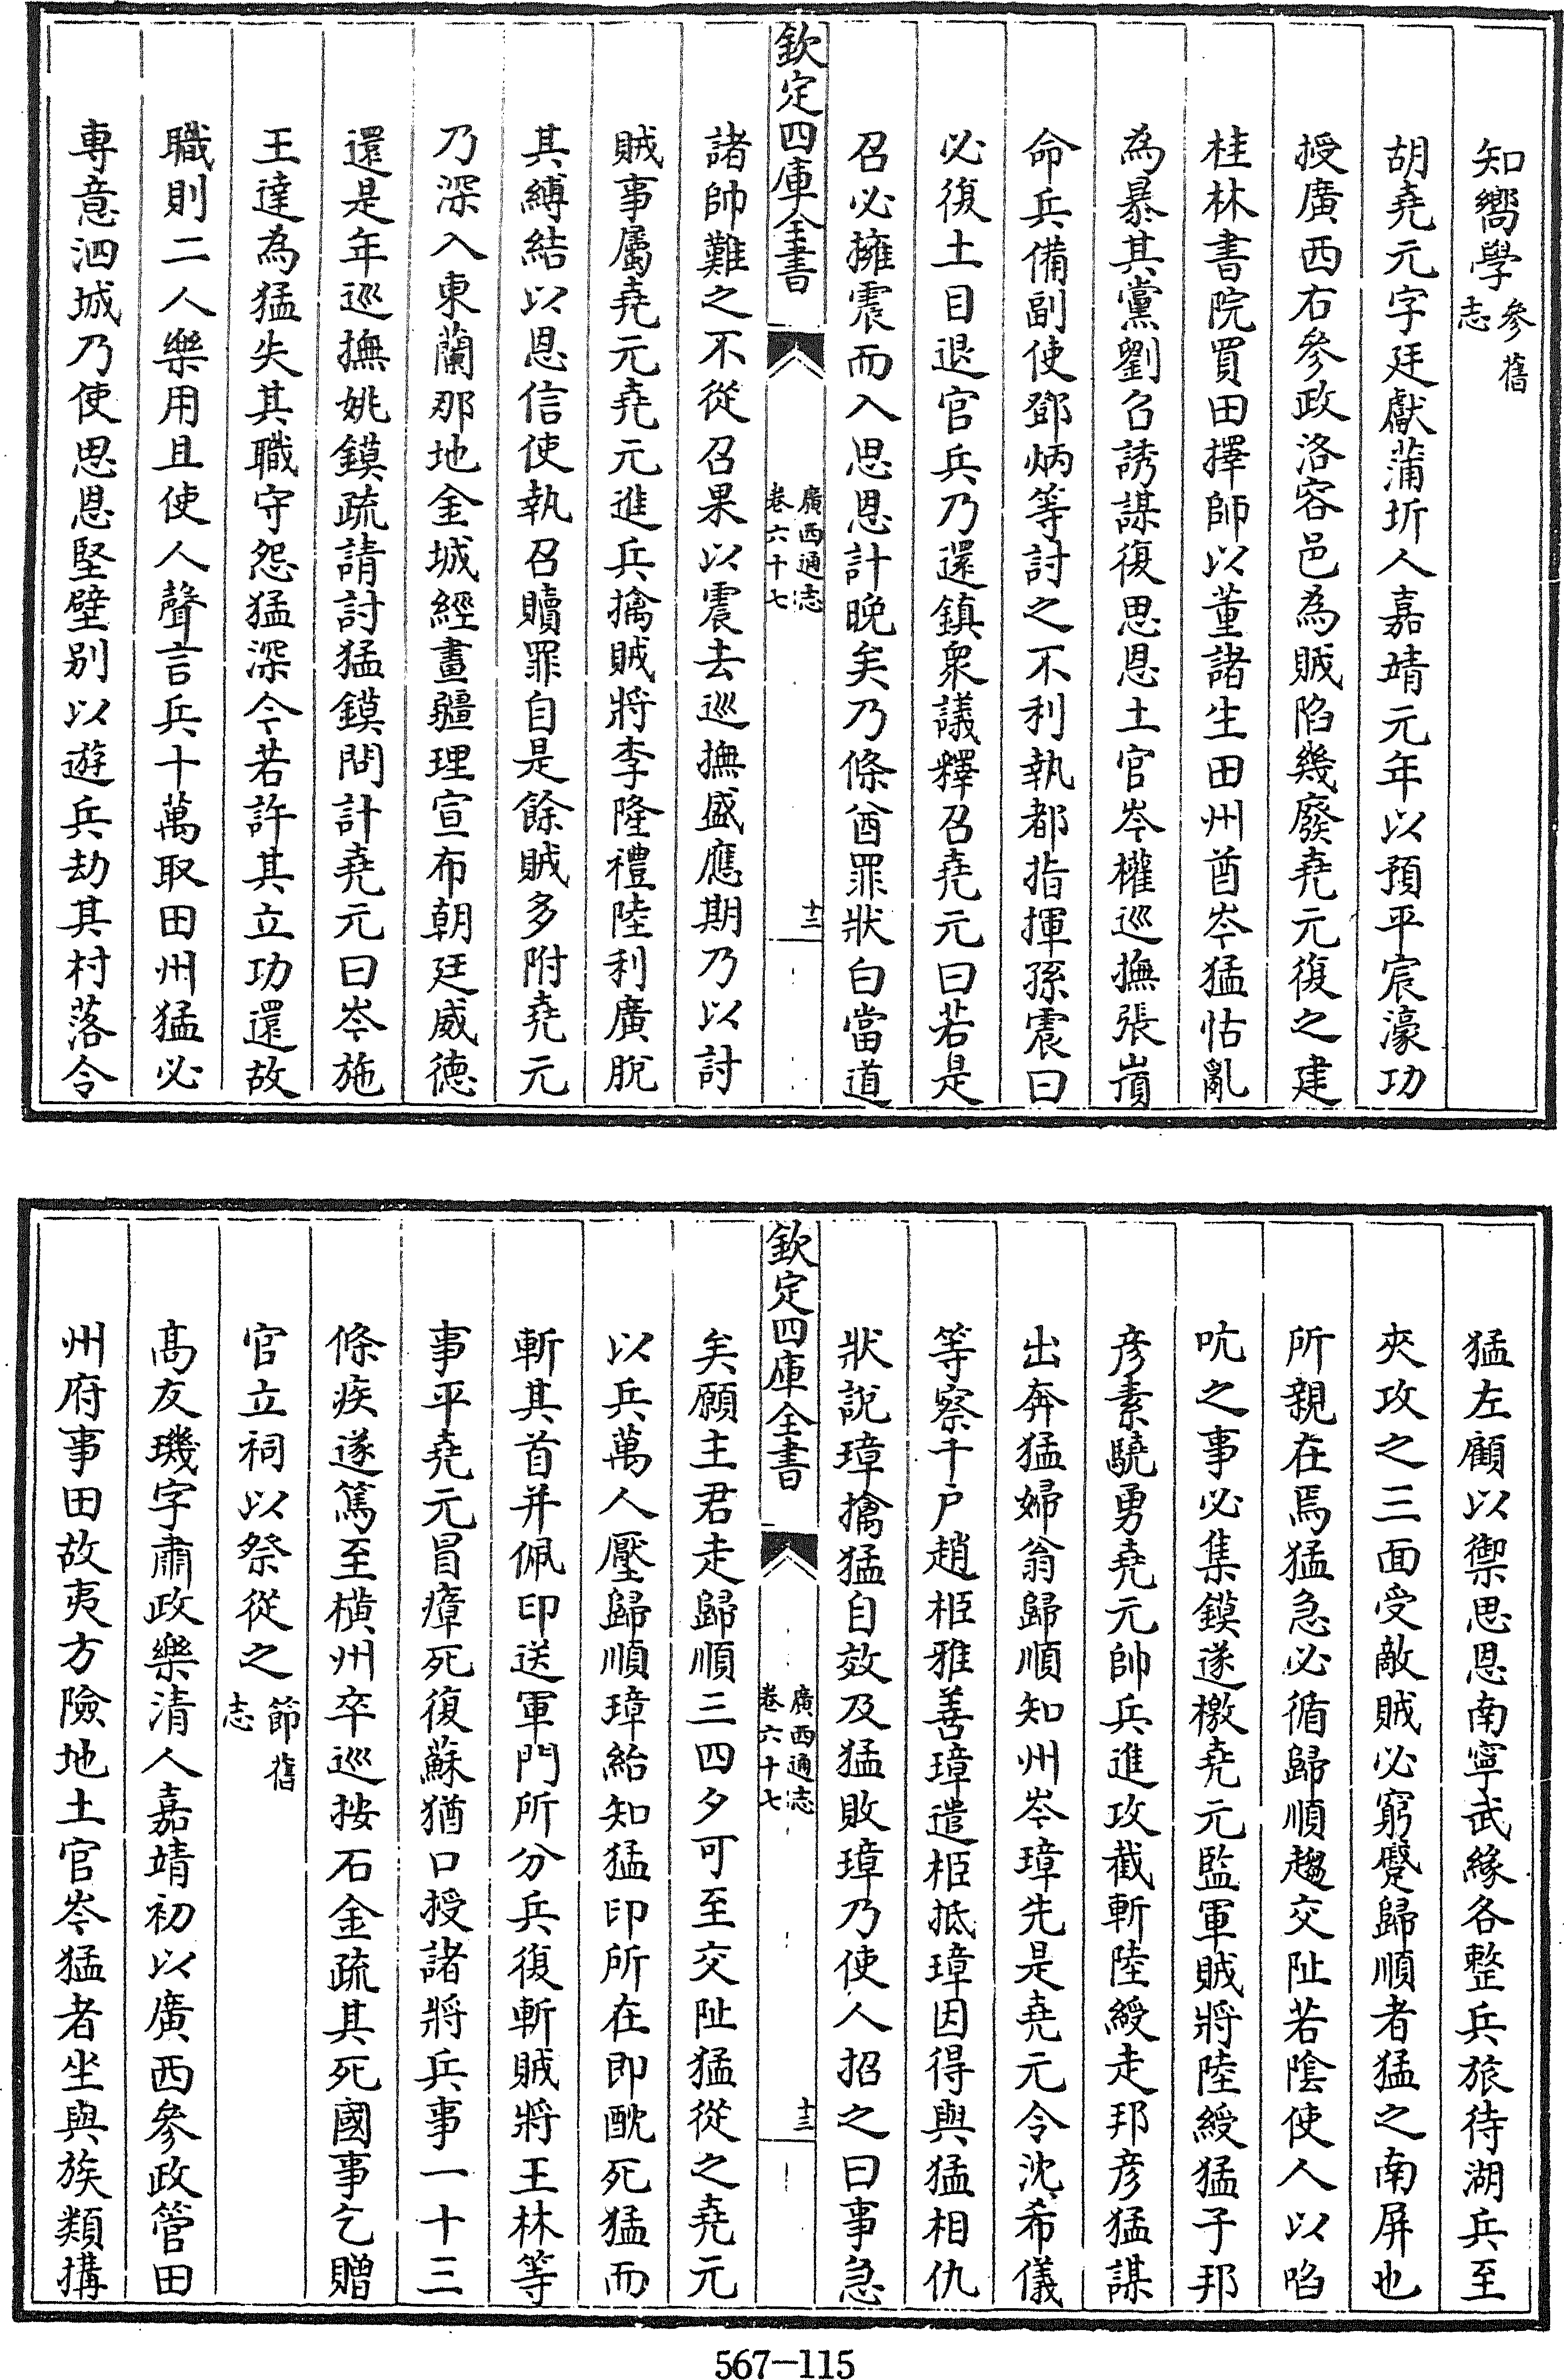 知嚮學參舊志
胡堯元字廷獻蒲圻人嘉靖元年以預平宸濠功
授廣西右參政洛容邑為賊陷幾廢堯元復之建
桂林書院買田擇師以董諸生田州酋岑猛怙亂
為暴其黨劉召誘謀復思恩土官岑𣙜巡撫張嵿
命兵備副使鄧炳等討之不利執都指揮孫震曰
必復土目退官兵乃還鎮衆議釋召堯元曰若是
召必擁震而入思恩計晚矣乃條酋罪狀白當道
欽定四庫全書
廣西通志
卷六十七
十三
諸帥難之不從召果以震去巡撫盛應期乃以討
賊事屬堯元堯元進兵擒賊將李隆禮陸利廣脫
其縛結以恩信使執召贖罪自是餘賊多附堯元
乃深入東蘭那地金城經畫疆理宣布朝廷威德
還是年巡撫姚鏌疏請討猛鏌問計堯元曰岑施
王達為猛失其職守怨猛深今若許其立功還故
職則二人樂用且使人聲言兵十萬取田州猛必
專意泗城乃使思恩堅壁別以遊兵劫其村落令
猛左顧以禦思恩南寧武緣各整兵旅待湖兵至
夾攻之三面受敵賊必窮蹙歸順者猛之南屏也
所親在焉猛急必循歸順趨交阯若陰使人以陷
吭之事必集鏌遂檄堯元監軍賊將陸綬猛子邦
彦素驍勇堯元帥兵進攻截斬陸綬走邦彦猛謀
出奔猛婦翁歸順知州岑璋先是堯元令沈希儀
等察千户趙柜雅善璋遣柜抵璋因得與猛相仇
狀說璋擒猛自效及猛敗璋乃使人招之曰事急
欽定四庫全書
廣西通志
卷六十七
十三
矣願主君走歸順三四夕可至交阯猛從之堯元
以兵萬人壓歸順璋紿知猛印所在即酖死猛而
斬其首并佩印送軍門所分兵復斬賊將王林等
事平堯元冒瘴死復蘇猶口授諸將兵事一十三
條疾遂篤至横州卒巡按石金疏其死國事乞贈
官立祠以祭從之節舊志
高友璣字肅政樂清人嘉靖初以廣西參政管田
州府事田故夷方險地土官岑猛者坐與族類搆
567-115